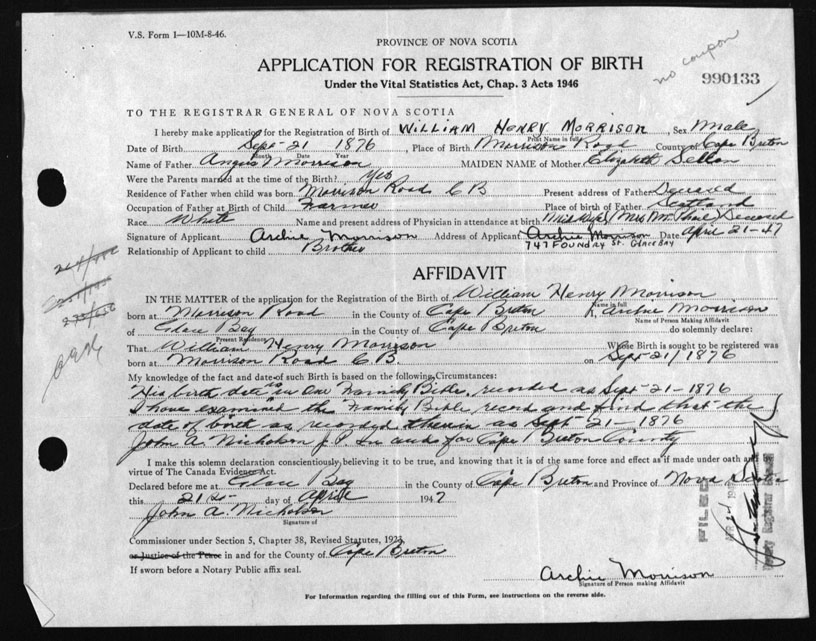 V.S. Form 1—10M-8-46.
PROVINCE OF NOVA SCOTIA
APPLICATION FOR REGISTRATION OF BIRTH
no coupon
Under the Vital Statistics Act, Chap. 3 Acts 1946
990133
TO THE REGISTRAR GENERAL OF NOVA SCOTIA
I hereby make application for the Registration of Birth of WILLIAM HENRY MORRISON, Sex Male
Print Name in full
Date of Birth Sept 21 1876, Place of Birth Morrison Road County of Cape Breton
Month Date Year
Name of Father Angus Morrison MAIDEN NAME of Mother Elizabeth
Were the Parents married at the time of Birth? Yes
Residence of Father when child was born Morrison Road C B Present address of Father Deceased
Occupation of Father at Birth of Child Farmer Place of birth of Father Scotland
Race White Name and present address of Physician in attendance at birth Deceased
Signature of Applicant Archie Morrison Address of Applicant Archie Morrison Date April 21-47
747 FOUNDRY St. GLACE BAY
Relationship of Applicant to child Brother
AFFIDAVIT
IN THE MATTER of the application for the Registration of the Birth of William Henry Morrison
Name in full
born at Morrison Road in the County of Cape Breton I, Archie Morrison
Name of Person Making Affidavit
of Glace Bay in the County of Cape Breton do solemnly declare:
Present Residence
That William Henry Morrison Whose Birth is sought to be registered was
born at Morrison Road C.B. on Sept 21/1876
My knowledge of the fact and date of such Birth is based on the following Circumstances:
His birth date is in our Family Bible, recorded as Sept 21-1876
I have examined the Family Bible record and find that the
date of birth as recorded therein as Sept 21-1876
John A Nicholson J.P. In and for Cape Breton County
I make this solemn declaration conscientiously believing it to be true, and knowing that it is of the same force and effect as if made under oath and by
virtue of The Canada Evidence Act.
Declared before me at Glace Bay in the County of Cape Breton and Province of Nova Scotia
this 21st day of April 1947
John A. Nicholson
Signature of
Commissioner under Section 5, Chapter 38, Revised Statutes, 1923,
or Justice of the Peace in and for the County of Cape Breton
If sworn before a Notary Public affix seal.
Archie Morrison
Signature of Person making Affidavit
For Information regarding the filling out of this Form, see instructions on the reverse side.
FILED